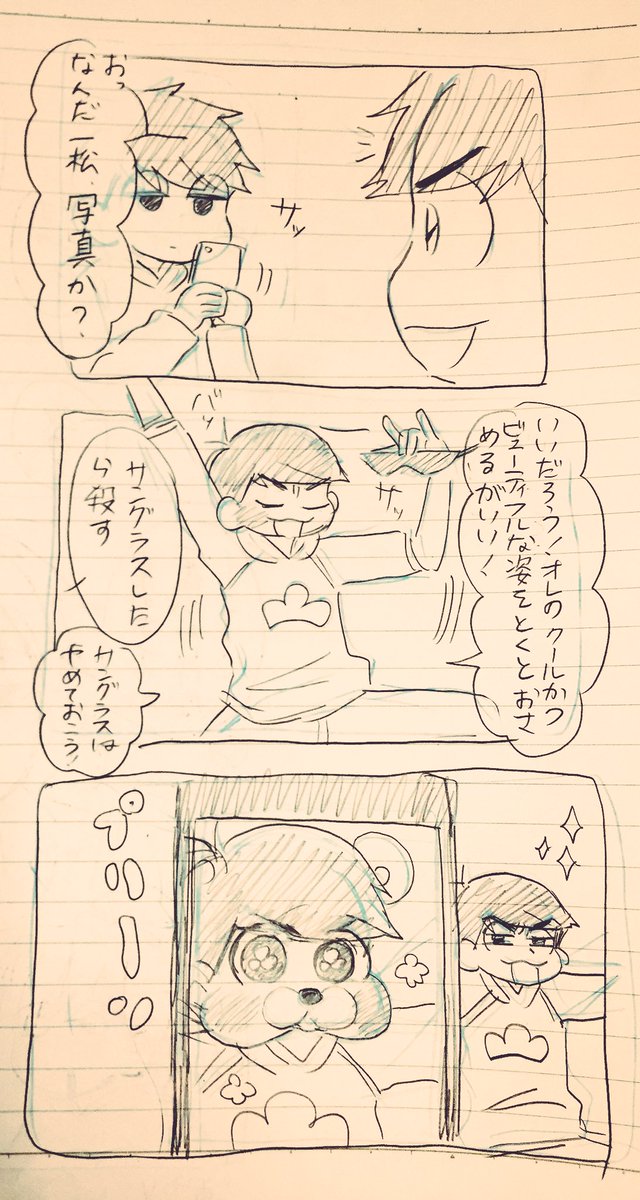 おっ
なんだ一松、
写真か?
サッ
いいだろう!オレのクールかつ
ビューティフルな姿をとくとおさ
めるがいい!
バッ
サッ
サングラスした
ら殺す
サングラスは
やめておこう!
プリーツ